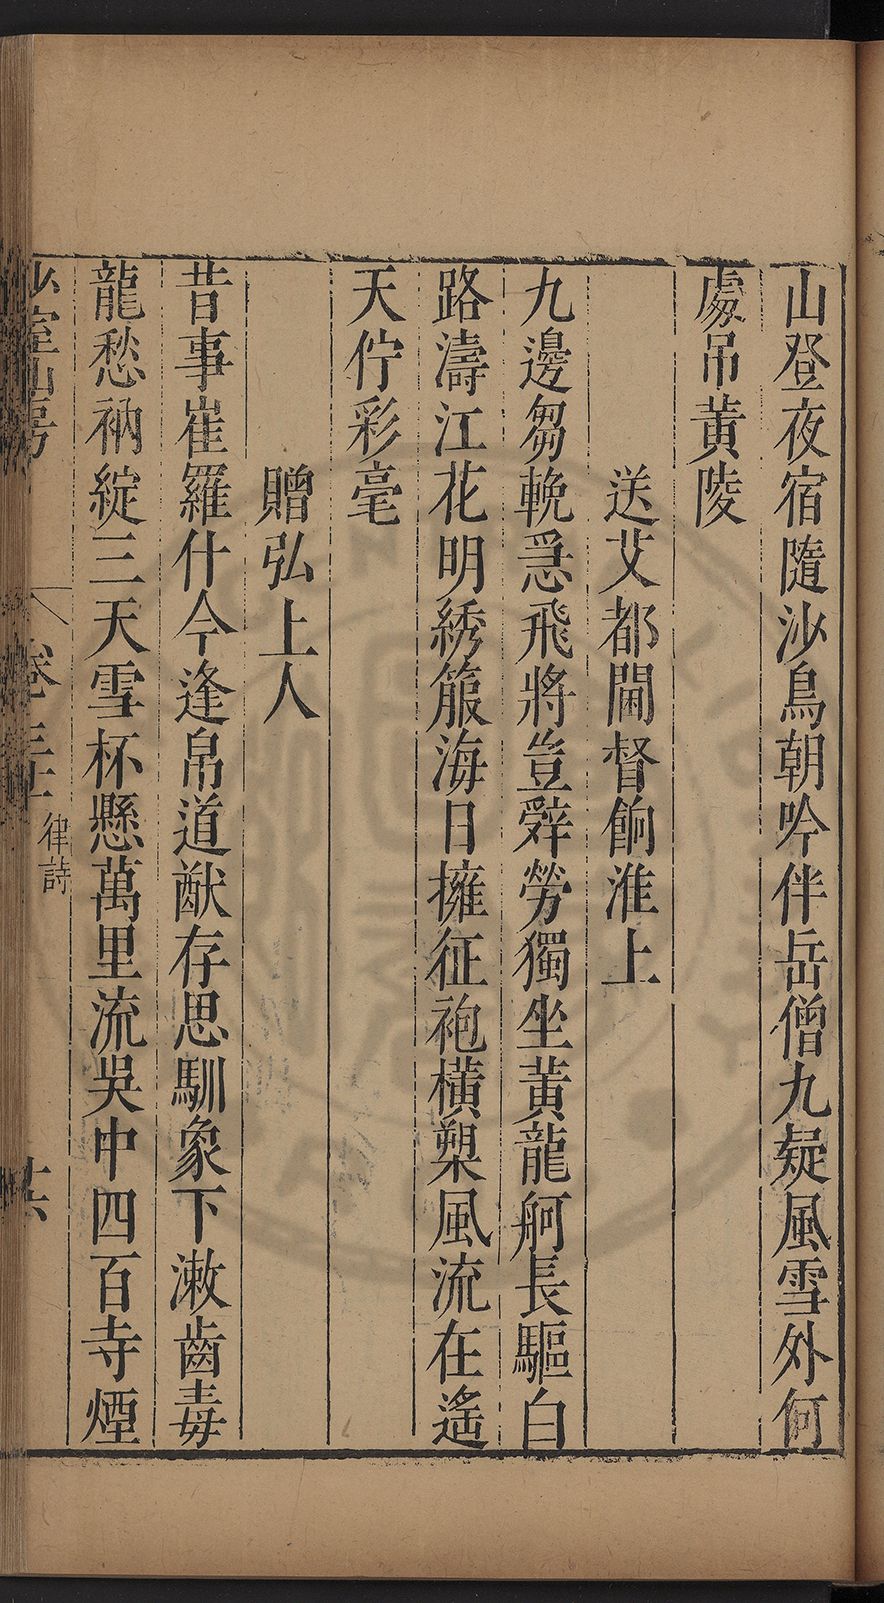 山登夜宿隨沙鳥朝吟伴岳僧九疑風雪外何
處吊黃陵
送艾都閫督餉淮上
九邊芻輓急飛將豈辭勞獨坐黃龍舸長驅白
路濤江花明綉箙海日擁征袍橫槊風流在遙
天佇彩毫
贈弘上人
昔事崔羅什今逢帛道猷存思馴象下漱齒毒
龍愁衲綻三天雪杯懸萬里流吳中四百寺煙
少室山房 卷三十 律詩 十六